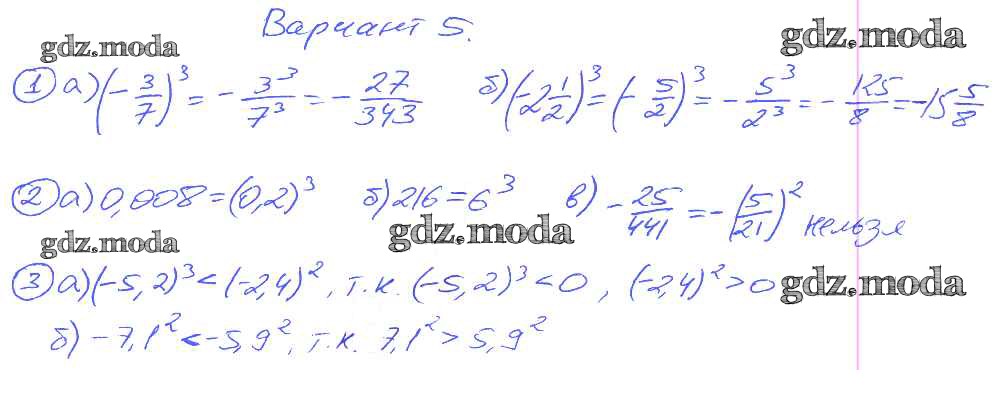 Вариант 5.
gdz.moda
gdz.moda
① а) (-3/7)³ = -3³/7³ = -27/343 б) (-2 1/2)³ = (-5/2)³ = -5³/2³ = -125/8 = -15 5/8
② а) 0,008 = (0,2)³ б) 216 = 6³ в) -25/441 = -(5/21)² нельзя
gdz.moda
gdz.moda
③ а) (-5,2)³ < (-2,4)², т.к. (-5,2)³ < 0, (-2,4)² > 0
gdz.moda
б) -7,1² < -5,9², т.к. 7,1² > 5,9²